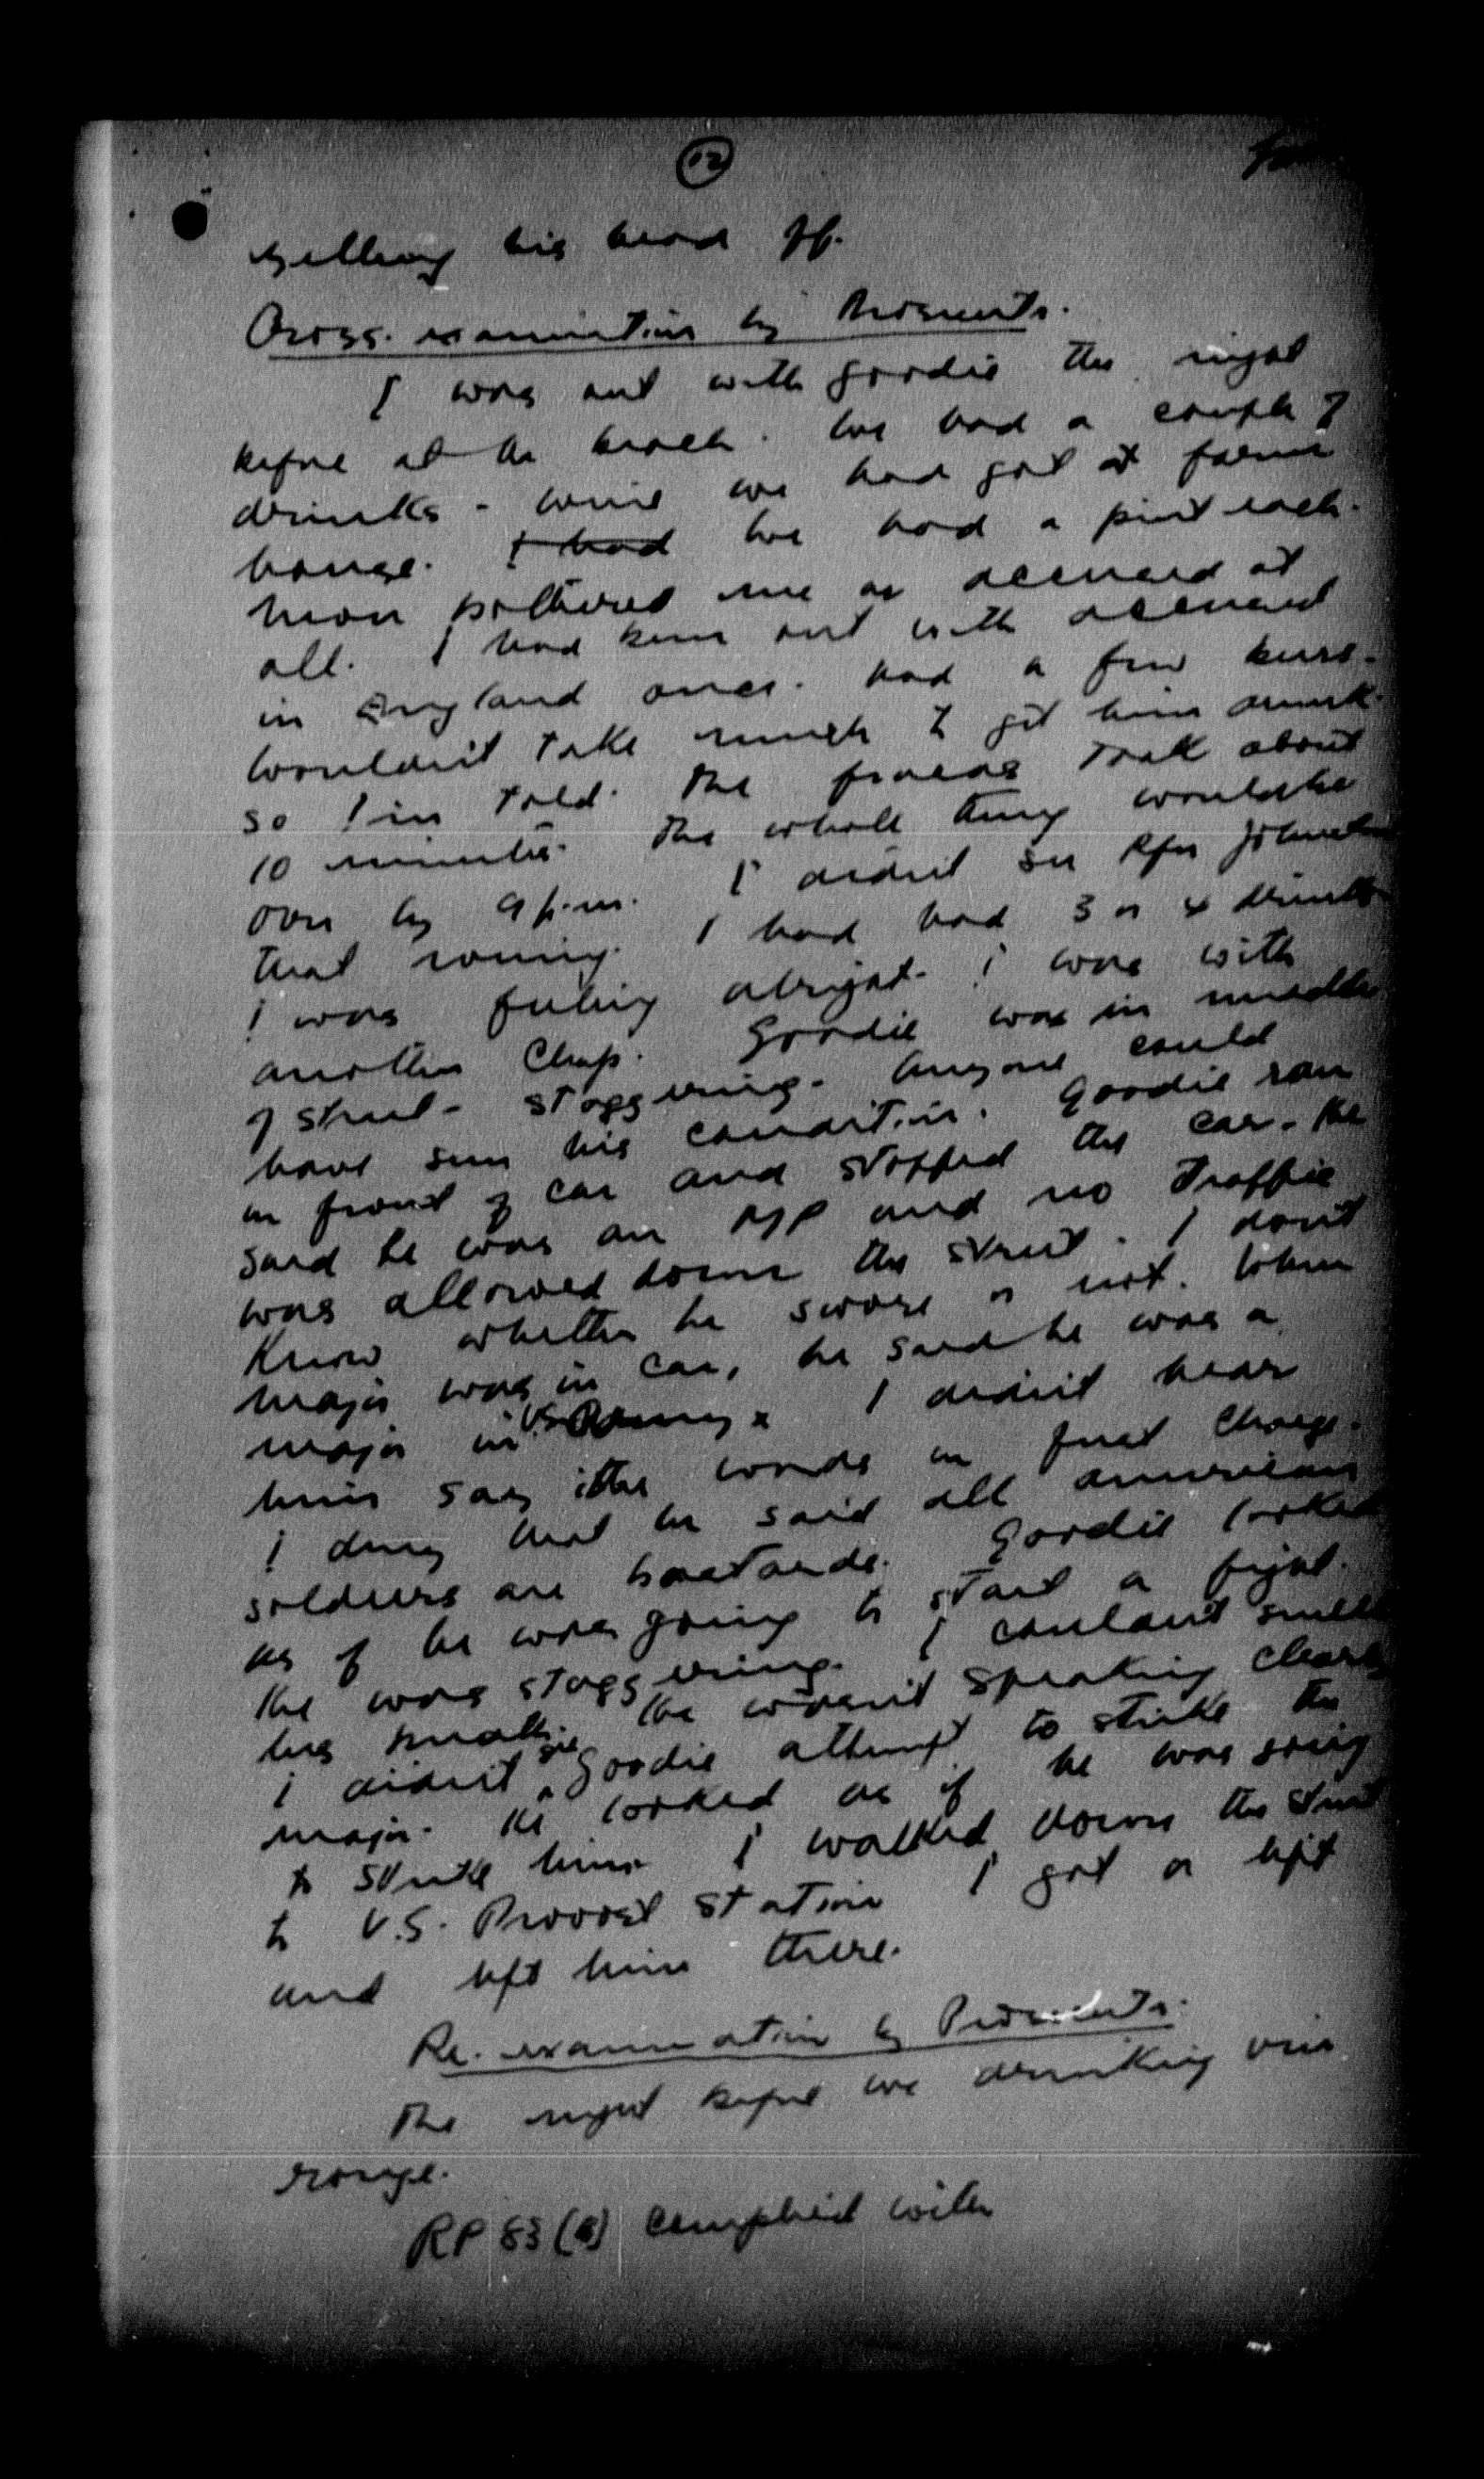 12
yelling his head off.
Cross-examination by Prosecutor.
I was out with Goodie the night
before at the beach. We had a couple of
drinks - wine we had got at farm
house. I had We had a pint each.
bothered me or accused at
all. I had been out with accused
in England once. Had a few beers.
Wouldn't take much to get him drunk
so I'm told. The fracas took about
10 minutes. The whole thing would be
over by 9 p.m. I didn't see Rfn Johnston
that evening. I had had 3 or 4 drinks
I was feeling alright. I was with
another chap. Goodie was in middle
of street - staggering. Anyone could
have seen his condition. Goodie ran
in front of car and stopped the car. He
said he was an MP and no traffic
was allowed down the street. I don't
know whether he swore or not. When
major was in car, he said he was a
major in US Army. I didn't hear
him say the words in first charge.
I deny that he said all american
soldiers are bastards. Goodie looked
as if he was going to start a fight.
He was staggering. I couldn't smell
his breath. He wasn't speaking clearly
I didn't see Goodie attempt to strike the
major. He looked as if he was going
to strike him. I walked down the street
to U.S. Provost Station I got a lift
and left him there.
Re-examination by Prosecutor.
The night before we drinking vin
rouge.
RP 83 (B) complied with